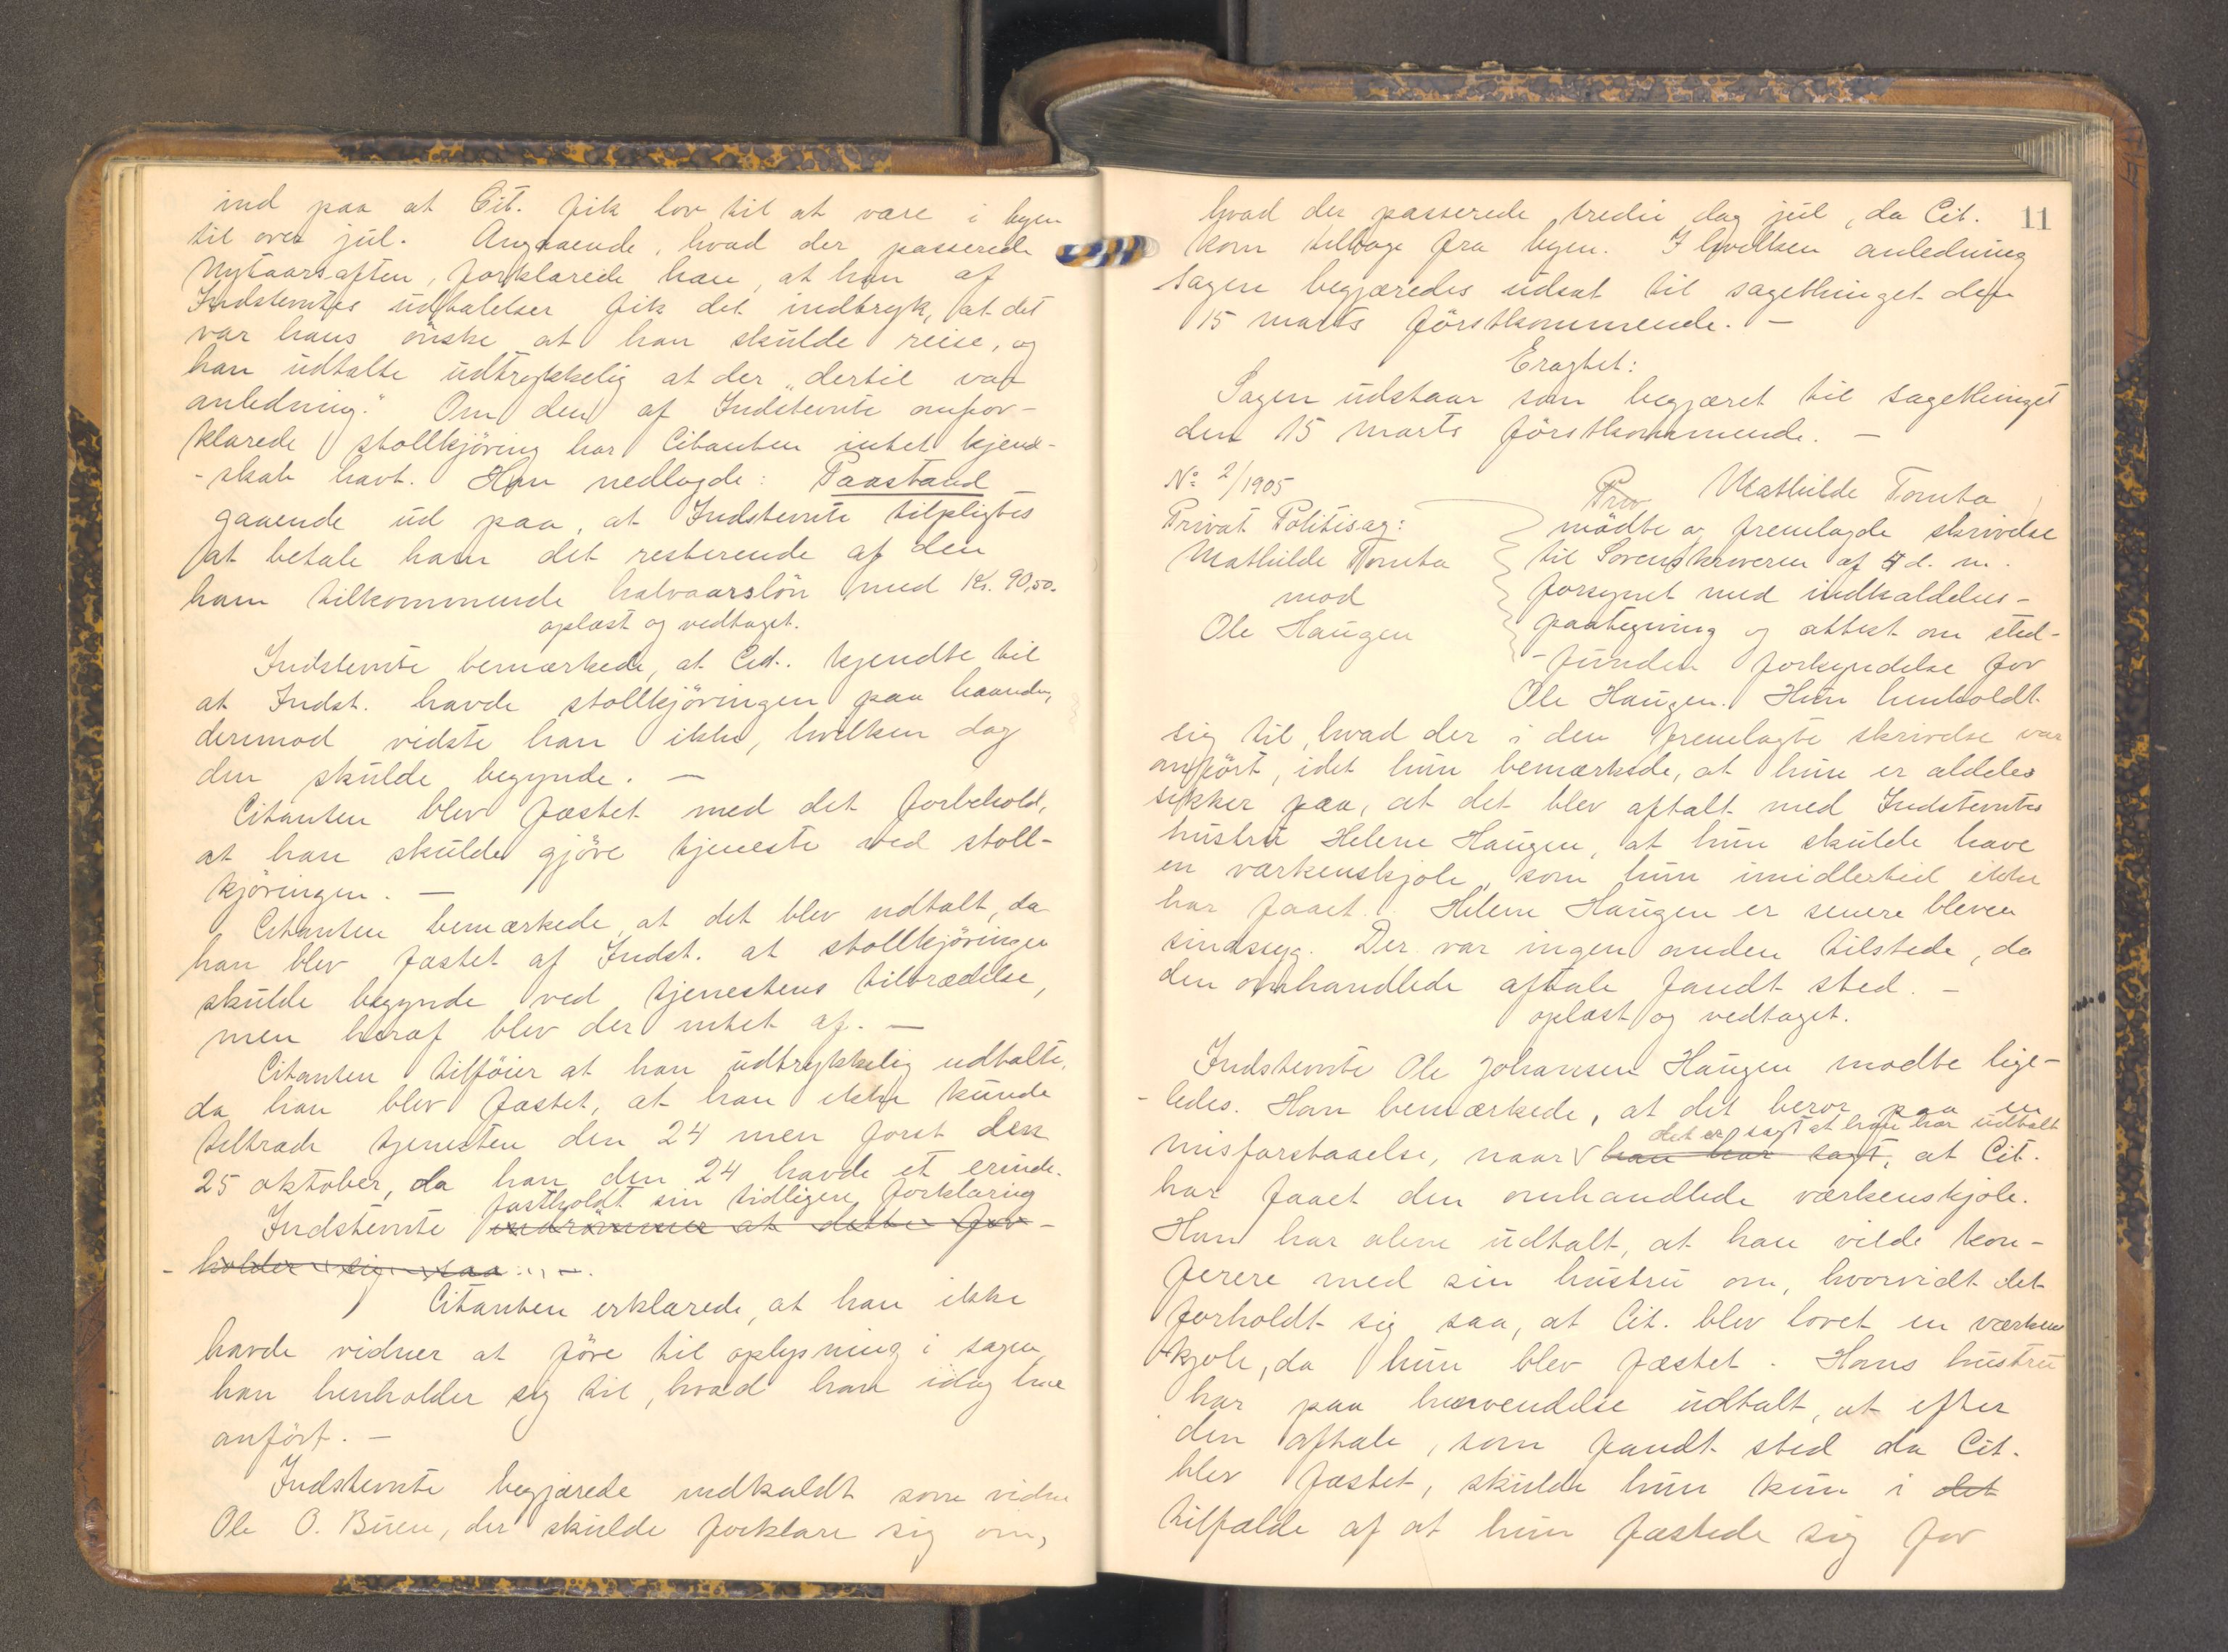 ind paa at Cit. fik lov til at være i byen
til over jul. Angaaende, hvad der passerede
Nytaarsaften, forklarede han, at han af
Indstevntes udtalelser fik det indtryk, at det
var hans ønske at han skulde reise, og
han udtalte udtrykkelig at der „dertil var
anledning." Om den af Indstevnte omfor-
klarede stollkjöring har Citanten intet kjend-
-skab havt. Han nedlagde: Paastand
gaaende ud paa, at Indstevnte tilpligtes
at betale ham det resterende af den
ham tilkommende halvaarslön med Kr. 90,50.
oplæst og vedtaget.
Indstevnte bemærkede, at Cit. kjendte til
at Indst. havde stollkjöringen paa haanden,
derimod vidste han ikke, hvilken dag
den skulde begynde. —
Citanten blev fæstet med det forbehold,
at han skulde gjöre tjeneste ved stoll-
kjöringen. —
Citanten bemærkede, at det blev udtalt, da
han blev fæstet af Indst. at stollkjöringen
skulde begynde ved tjenestens tiltrædelse,
men heraf blev der intet af. —
Citanten tilföier at han udtrykkelig udtalte,
da han blev fæstet, at han ikke kunde
tiltræde tjenesten den 24 men først den
25 oktober, da han den 24 havde et erinde.
fastholdt sin tidligere forklaring
Indstevnte indrömmer at dette for-
- holder sig saa. —
Citanten erklærede, at han ikke
havde vidner at före til oplysning i sagen,
han henholder sig til, hvad han idag har
anfört. —
Indstevnte begjærede indkaldt som vidne
Ole O. Buen, der skulde forklare sig om,
11
hvad der passerede tredie dag jul, da Cit.
kom tilbage fra byen. I hvilken anledning
sagen begjæredes udsat til sagethinget den
15 marts förstkommende. —
Eragtet:
Sagen udstaar som begjæret til sagethinget
den 15 marts förstkommende. —
No 2/1905
Privat Politisag:
Mathilde Tomta
mod
Ole Haugen
Priv Mathilde Tomta
mödte og fremlagde skrivelse
til Sorenskriveren af 4 d. m.
forsynet med indkaldelses-
paategning og attest om sted-
- funden forkyndelse for
Ole Haugen. Hun henholdt
sig til, hvad der i den fremlagte skrivelse var
anfört, idet hun bemærkede, at hun er aldeles
sikker paa, at det blev aftalt med Indstevntes
hustru Helene Haugen, at hun skulde have
en værkenskjole, som hun imidlertid ikke
har faaet. Helene Haugen er senere bleven
sindssyg. Der var ingen anden tilstede, da
den omhandlede aftale fandt sted. —
oplæst og vedtaget.
Indstevnte Ole Johansen Haugen mödte lige-
- ledes. Han bemærkede, at det beror paa en
det er sagt at han har udtalt
misforstaaelse, naar han har sagt, at Cit.
har faaet den omhandlede værkenskjole.
Han har alene udtalt, at han vilde kon-
ferere med sin hustru om, hvorvidt det
forholdt sig saa, at Cit. blev lovet en værkens
kjole, da hun blev fæstet. Hans hustru
har paa henvendelse udtalt, at efter
den aftale, som fandt sted da Cit.
blev fæstet, skulde hun kun i det
tilfælde af at hun fæstede sig for